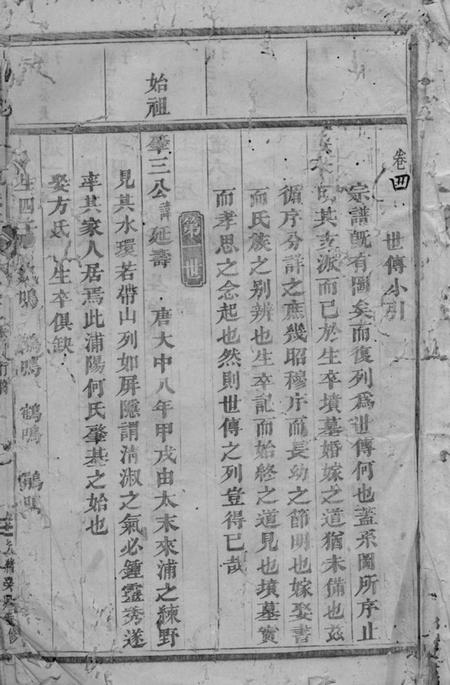 卷四
世傳小引
宗譜既有圖矣而復列爲世傳何也蓋系圖所序止
其支派而已於生卒墳墓婚嫁之道猶未備也茲
循序分詳之庶幾昭穆序而長幼之節明也嫁娶書
而氏族之别辨也生卒記而始終之道見也墳墓實
而孝思之念起也然則世傳之列豈得已哉
第一世
始祖 肇三公諱延壽 唐大中八年甲戌由太末來浦之練野
見其水環若帶山列如屏隱謂清淑之氣必鍾靈秀遂
率其家人居焉此浦陽何氏肇基之始也
娶方氏 生卒俱缺
生四子 鳴 鳴 鶴鳴 鳴